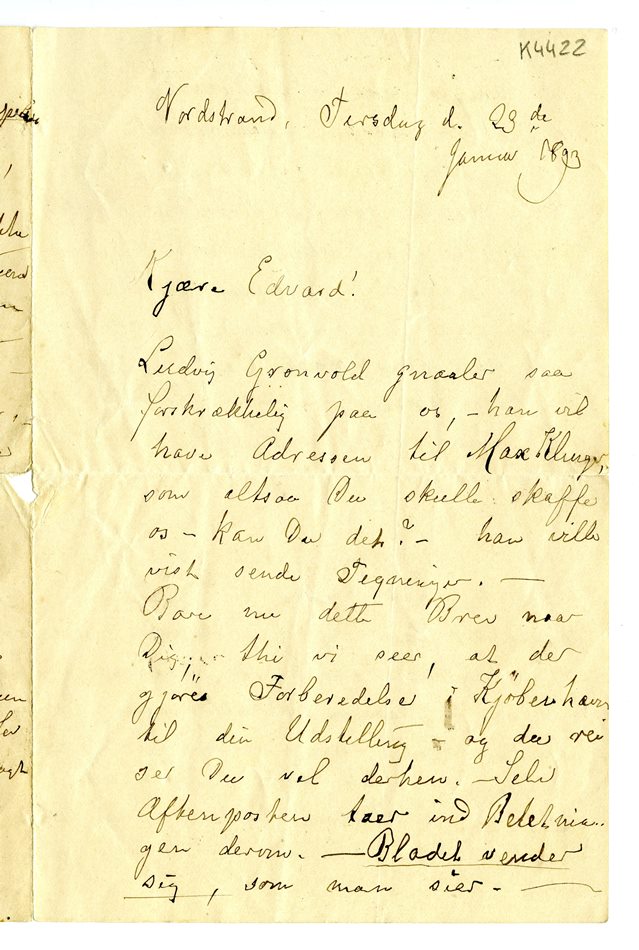 K4422
Nordstrand, Tirsdag d. 23de
Januar 1893
Kjære Edvard!
Ludvig Grönvold gnaaler saa
forskrækkelig paa os, – han vil
have Adressen til Max Klinger,
som altsaa Du skulle skaffe
os – kan Du det? – han ville
vist sende Tegninger. —
Bare nu dette Brev naar
Dig, – thi vi seer, at der
gjöres Forberedelse i Kjöbenhavn
til din Udstelling – og da rei
ser Du vel derhen. – Selv
Aftenposten taer ind Beretnin-
gen derom. — Bladet vender
sig, som man sier. —